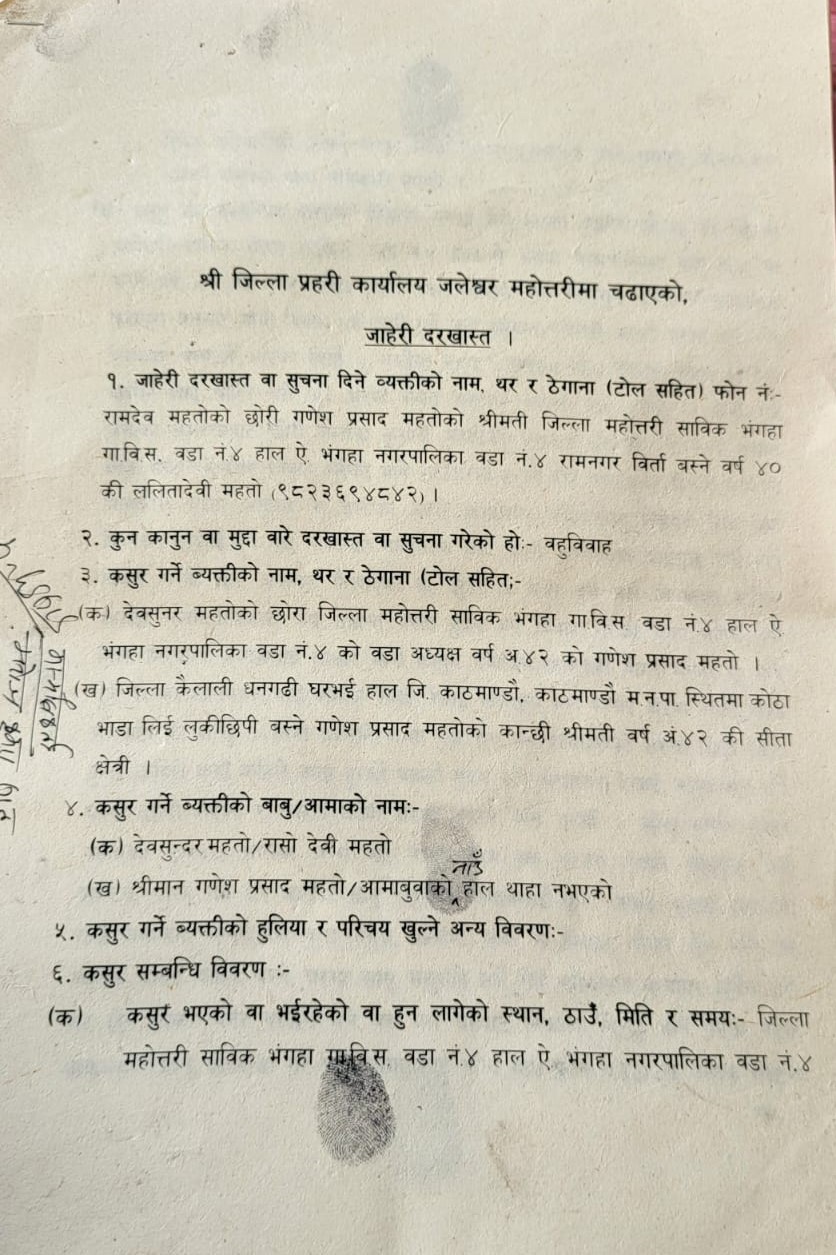 श्री जिल्ला प्रहरी कार्यालय जलेश्वर महोत्तरीमा चढाएको,
जाहेरी दरखास्त ।
१. जाहेरी दरखास्त वा सुचना दिने व्यक्तीको नाम, थर र ठेगाना (टोल सहित) फोन नंः-
रामदेव महतोको छोरी गणेश प्रसाद महतोको श्रीमती जिल्ला महोत्तरी साविक भंगहा
गा.वि.स. वडा नं.४ हाल ऐ. भंगहा नगरपालिका वडा नं.४ रामनगर विर्ता बस्ने वर्ष ४०
की ललितादेवी महतो (९८२३६९४८४२) ।
२. कुन कानुन वा मुद्दा वारे दरखास्त वा सुचना गरेको होः- वहुविवाह
३. कसुर गर्ने ब्यक्तीको नाम, थर र ठेगाना (टोल सहित;-
(क) देवसुनर महतोको छोरा जिल्ला महोत्तरी साविक भंगहा गा.वि.स. वडा नं.४ हाल ऐ.
भंगहा नगरपालिका वडा नं.४ को वडा अध्यक्ष वर्ष अ.४२ को गणेश प्रसाद महतो ।
(ख) जिल्ला कैलाली धनगढी घरभई हाल जि. काठमाण्डौ, काठमाण्डौ म.न.पा. स्थितमा कोठा
भाडा लिई लुकीछिपी बस्ने गणेश प्रसाद महतोको कान्छी श्रीमती वर्ष अं.४२ की सीता
क्षेत्री ।
४. कसुर गर्ने ब्यक्तीको बाबु/आमाको नामः-
(क) देवसुन्दर महतो/रासो देवी महतो
नाउँ
(ख) श्रीमान गणेश प्रसाद महतो/आमाबुवाको हाल थाहा नभएको
५. कसुर गर्ने ब्यक्तीको हुलिया र परिचय खुल्ने अन्य विवरणः-
६. कसुर सम्बन्धि विवरण :-
(क) कसुर भएको वा भईरहेको वा हुन लागेको स्थान, ठाउँ, मिति र समयः- जिल्ला
महोत्तरी साविक भंगहा गा.वि.स. वडा नं.४ हाल ऐ. भंगहा नगरपालिका वडा नं.४